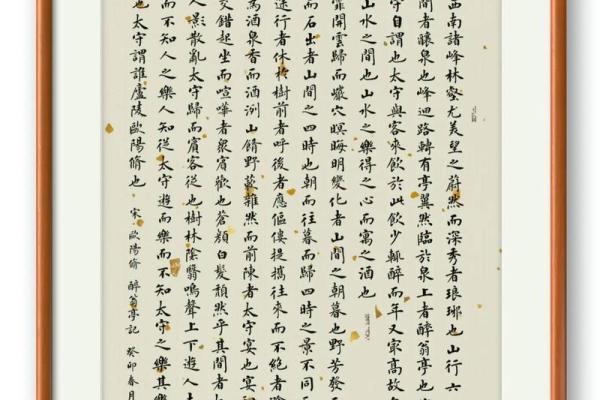 西南諸峰林壑尤美望之蔚然而深秀者琅琊也山行六
間者釀泉也峰迴路轉有亭翼然臨於泉上者醉翁亭也
守自謂也太守與客來飲於此飲少輒醉而年又冣高故
山水之間也山水之樂得之心而寓之酒也
霏開雲歸而巖穴暝晦明變化者山間之朝暮也野芳發
而石出者山間之四時也朝而往暮而歸四時之景不同
途行者休於樹前者呼後者應傴僂提攜往來而不絕者
為酒泉香而酒洌山餚野蔌雜然而前陳者太守宴也宴
交錯起坐而喧嘩者眾賓歡也蒼顏白髮頹然乎其間者
人影散亂太守歸而賓客從也樹林陰翳鳴聲上下遊人
而不知人之樂人知從太守遊而樂而不知太守之樂其樂
也太守謂誰廬陵歐陽脩也 宋 歐陽脩 醉翁亭記 癸卯春月